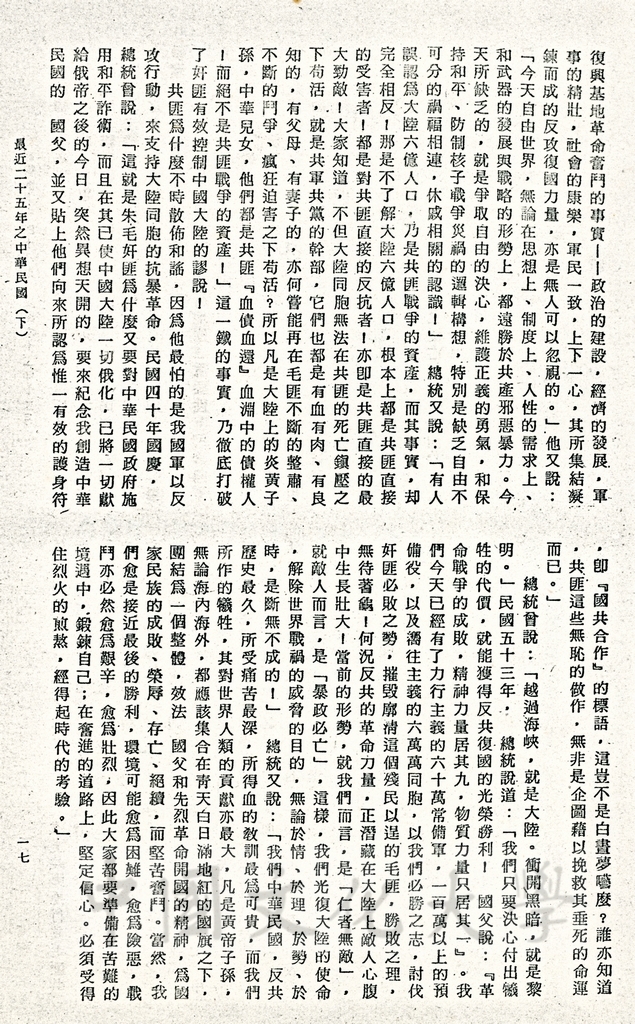 復興基地革命奮鬥的事實——政治的建設，經濟的發展，軍
事的精壯，社會的康樂，軍民一致，上下一心，其所集結凝
鍊而成的反攻復國力量，亦是無人可以忽視的。」他又說：
「今天自由世界，無論在思想上、制度上、人性的需求上、
和武器的發展與戰略的形勢上，都遠勝於共產邪惡暴力。今
天所缺乏的，就是爭取自由的決心，維護正義的勇氣，和保
持和平、防制核子戰爭災禍的邏輯構想，特別是缺乏自由不
可分的禍福相連，休戚相關的認識！」　總統又說：「有人
誤認為大陸六億人口，乃是共匪戰爭的資產，而其事實，却
完全相反！那是不了解大陸六億人口，根本上都是共匪直接
的受害者！都是對共匪直接的反抗者！亦即是共匪直接的最
大勁敵！大家知道，不但大陸同胞無法在共匪的死亡鎮壓之
下苟活，就是共軍共黨的幹部，它們也都是有血有肉、有良
知的，有父母、有妻子的，亦何嘗能再在毛匪不斷的整肅、
不斷的鬥爭、瘋狂迫害之下苟活？所以凡是大陸上的炎黃子
孫，中華兒女，他們都是共匪『血債血還』血淵中的債權人
！而絕不是共匪戰爭的資產！」這一鐵的事實，乃徹底打破
了奸匪有效控制中國大陸的謬說！
共匪為什麼不時散佈和謠，因為他最怕的是我國軍以反
攻行動，來支持大陸同胞的抗暴革命。民國四十年國慶，
總統曾說：「這就是朱毛奸匪為什麼又要對中華民國政府施
用和平詐術，而且在其已使中國大陸一切俄化，已將一切獻
給俄帝之後的今日，突然異想天開的，要來紀念我創造中華
民國的　國父，並又貼上他們向來所認為惟一有效的護身符
，卽『國共合作』的標語，這豈不是白晝夢囈麼？誰亦知道
，共匪這些無恥的做作，無非是企圖藉以挽救其垂死的命運
而已。」
總統曾說：「越過海峽，就是大陸。衝開黑暗，就是黎
明。」民國五十三年，　總統說道：「我們只要決心付出犧
牲的代價，就能獲得反共復國的光榮勝利！　國父說：『革
命戰爭的成敗，精神力量居其九，物質力量只居其一』。我
們今天已經有了力行主義的六十萬常備軍，一百萬以上的預
備役，以及嚮往主義的六萬萬同胞，以我們必勝之志，討伐
奸匪必敗之勢，摧毀廓清這個殘民以逞的毛匪，勝敗之理，
無待著龜！何況反共的革命力量，正潛藏在大陸上敵人心腹
中生長壯大！當前的形勢，就我們而言，是「仁者無敵」，
就敵人而言，是「暴政必亡」，這樣，我們光復大陸的使命
，解除世界戰禍的威脅的目的，無論於情、於理、於勢、於
時，是斷無不成的！」　總統又說：「我們中華民國，反共
歷史最久，所受痛苦最深，所得血的教訓最為可貴，而我們
所作的犧牲，其對世界人類的貢獻亦最大，凡是黃帝子孫，
無論海內海外，都應該集合在青天白日滿地紅的國旗之下，
團結為一個整體，效法　國父和先烈革命開國的精神，為國
家民族的成敗、榮辱、存亡、絕續，而堅苦奮鬥。當然，我
們愈是接近最後的勝利，環境可能愈為困難，愈為險惡，戰
鬥亦必然愈為艱辛，愈為壯烈，因此大家都要準備在苦難的
境遇中，鍛鍊自己；在奮進的道路上，堅定信心。必須受得
住烈火的煎熬，經得起時代的考驗。」
最近二十五年之中華民國（下）
一七
中國文化大學